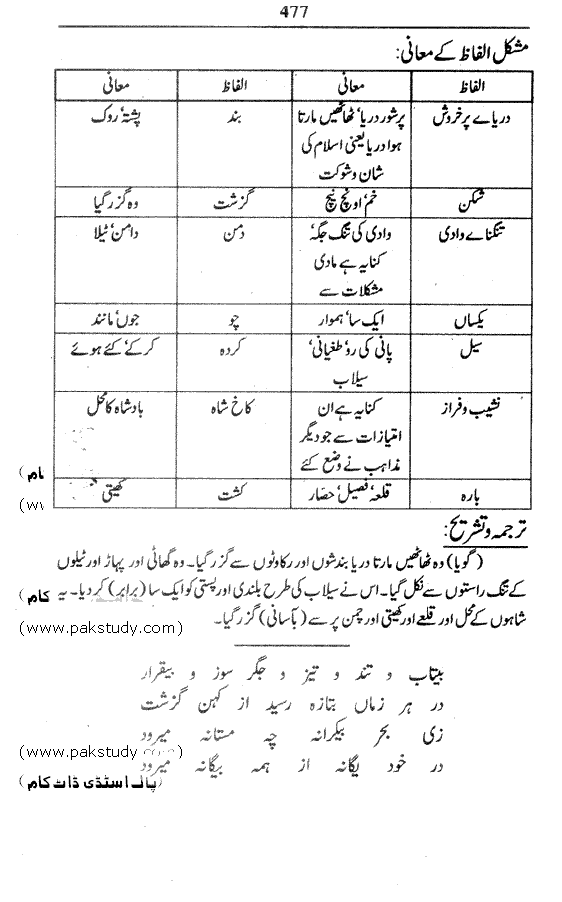 477
مشکل الفاظ کے معانی:
الفاظ معانی الفاظ معانی
دریاے پرخروش پرشور دریا، ٹھاٹھیں مارتا بند پشتہ، روک
ہوا دریا یعنی اسلام کی
شان و شوکت
شکن خم، اونچ نیچ گزشت وہ گزر گیا
تنگناے وادی وادی کی تنگ جگہ، دمن دامن، ٹیلا
کنایہ ہے مادی
مشکلات سے
یکساں ایک سا، ہموار چو جوں، مانند
سیل پانی کی رو، طغیانی، کردہ کر کے، کئے ہوئے
سیلاب
نشیب و فراز کنایہ ہے ان کاخ شاہ بادشاہ کا محل
امتیازات سے جو دیگر
مذاہب نے وضع کئے
کام)
بارہ قلعہ، فصیل، حصار کشت کھیتی
(ww
ترجمہ و تشریح:
(گویا) وہ ٹھاٹھیں مارتا دریا بندشوں اور رکاوٹوں سے گزر گیا۔ وہ گھاٹی اور پہاڑ اور ٹیلوں
کے تنگ راستوں سے نکل گیا۔ اس نے سیلاب کی طرح بلندی اور پستی کو ایک سا (برابر) کر دیا۔ یہ
کام)
شاہوں کے محل اور قلعے اور کھیتی اور چمن پر سے (بآسانی) گزر گیا۔
(www.pakstudy.com)
بیتاب و تند و تیز و جگر سوز و بیقرار
در ہر زماں بتازہ رسید از کہن گزشت
زی بحر بیکرانہ چہ مستانہ میرود
(www.pakstudy.com)
در خود یگانہ از ہمہ بیگانہ میرود
(پاک اسٹڈی ڈاٹ کام)